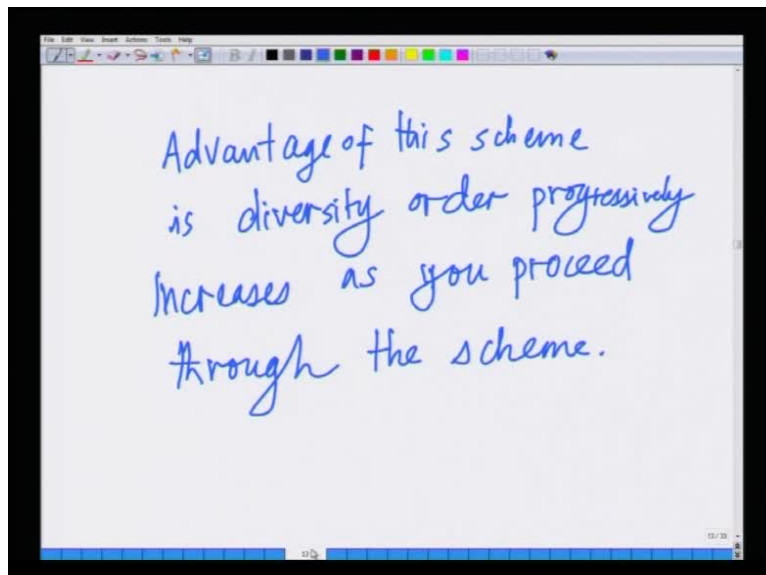 File Edit View Insert Actions Tools Help
Advantage of this scheme
is diversity order progressively
Increases as you proceed
through the scheme.
13 / 33
13